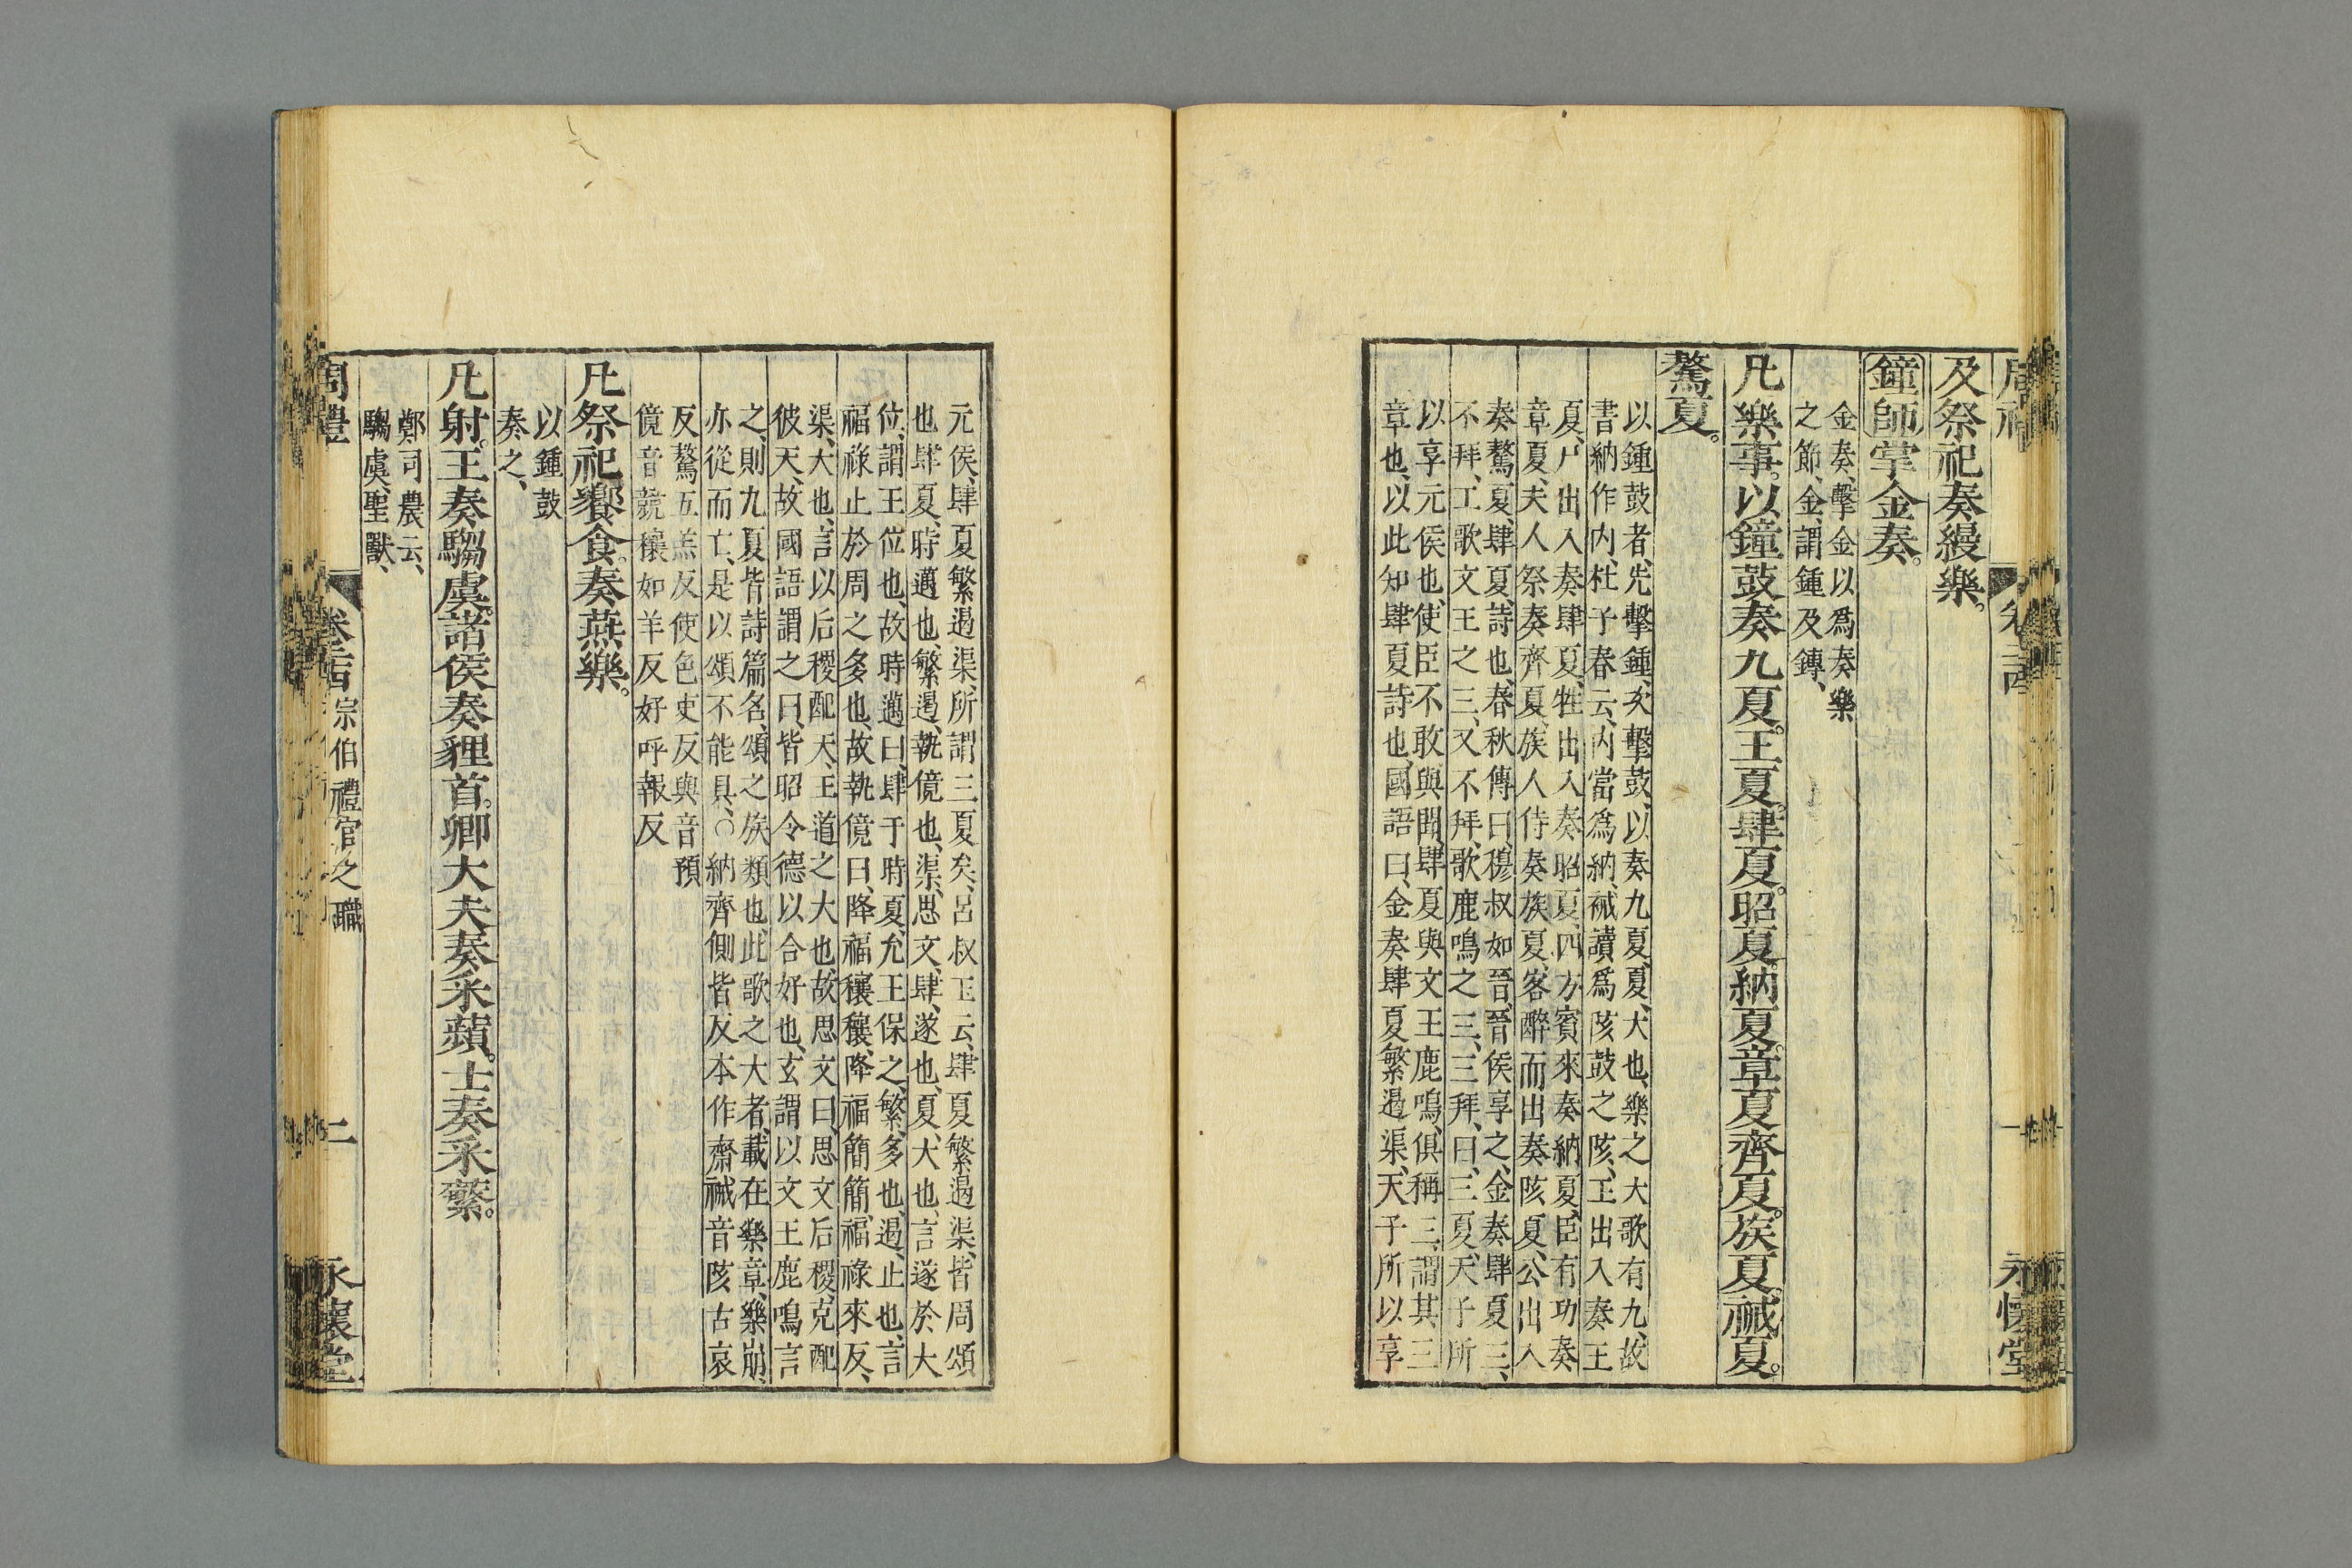 及祭祀奏縵樂。
鐘師掌金奏。
金奏、擊金以爲奏樂
之節、金、謂鍾及鏄、
凡樂事。以鐘鼓奏九夏。王夏。肆夏。昭夏。納夏。章夏。齊夏。族夏。祴夏。
驁夏。
以鍾鼓者、先擊鍾、次擊鼓、以奏九夏、夏、大也、樂之大歌有九、故
書納作内、杜子春云、内當爲納、祴讀爲陔鼓之陔、王出入奏王
夏、尸出入奏肆夏、牲出入奏昭夏、四方賓來奏納夏、臣有功奏
章夏、夫人祭奏齊夏、族人侍奏族夏、客醉而出奏陔夏、公出入
奏驁夏、肆夏、詩也、春秋傳曰、穆叔如晉、晉侯享之、金奏肆夏三、
不拜、工歌文王之三、又不拜、歌鹿鳴之三、三拜、曰、三夏、天子所
以享元侯也、使臣不敢與聞、肆夏與文王鹿鳴、俱稱三、謂其三
章也、以此知肆夏詩也、國語曰、金奏肆夏繁遏渠、天子所以享
元侯、肆夏繁遏渠、所謂三夏矣、呂叔玉云、肆夏繁遏渠、皆周頌
也、肆夏、時邁也、繁遏、執傹也、渠、思文、肆、遂也、夏、大也、言遂於大
位、謂王位也、故時邁曰、肆于時夏、允王保之、繁、多也、遏、止也、言
福祿止於周之多也、故執傹曰、降福穰穰、降福簡簡、福祿來反、
渠、大也、言以后稷配天、王道之大也、故思文曰、思文后稷、克配
彼天、故國語謂之曰、皆昭令德以合好也、玄謂以文王鹿鳴言
之、則九夏皆詩篇名、頌之族類也、此歌之大者、載在樂章、樂崩、
亦從而亡、是以頌不能具、○納齊側皆反本作齋祴音陔古哀
反驁五羔反使色吏反與音預
傹音競穰如羊反好呼報反
凡祭祀饗食。奏燕樂。
以鍾鼓
奏之、
凡射。王奏騶虞。諸侯奏貍首。卿大夫奏采蘋。士奏采蘩。
鄭司農云、
騶虞、聖獸、
周禮
卷二十四
宗伯禮官之職
二
永懷堂